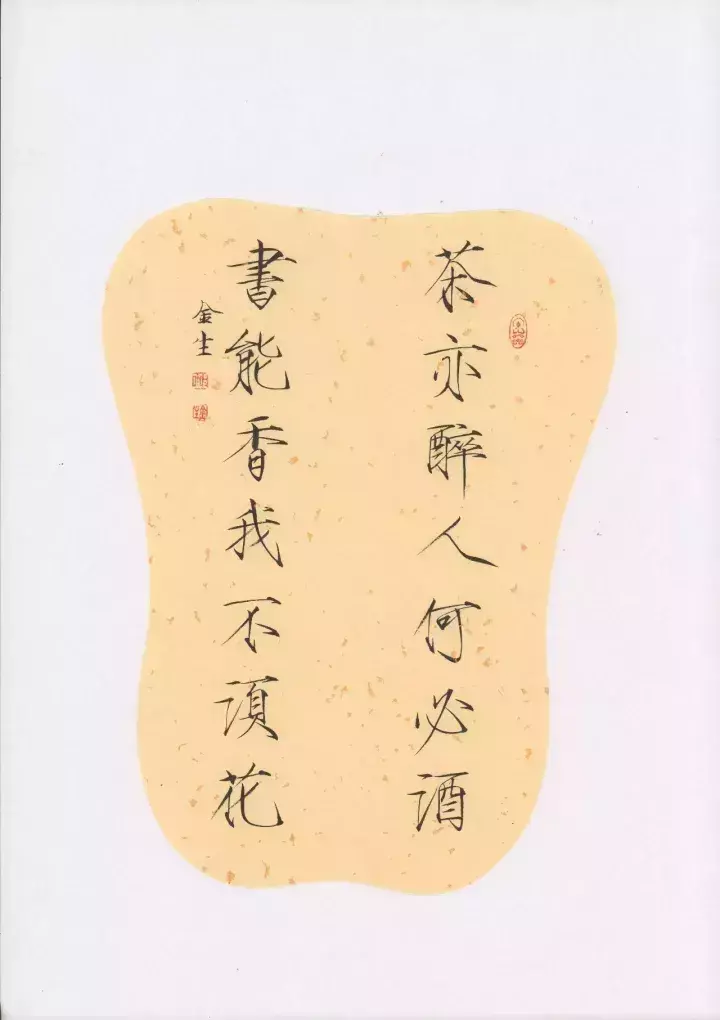 茶亦醉人何必酒
書能香我不須花
金生